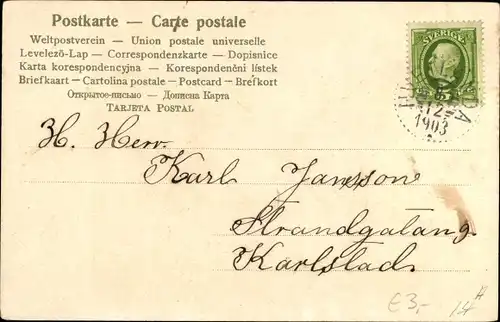 Postkarte — Carte postale
Weltpostverein — Union postale universelle
Levelező-Lap — Correspondenzkarte — Dopisnice
Karta korespondencyjna — Korespondenčni lístek
Briefkaart — Cartolina postale — Postcard — Brefkort
Открытое-письмо — Дописна Карта
TARJETA POSTAL
SVERIGE
5
12
1903
H. Herr
Karl Jansson
Strandgatan 9
Karlstad
€3,-
14